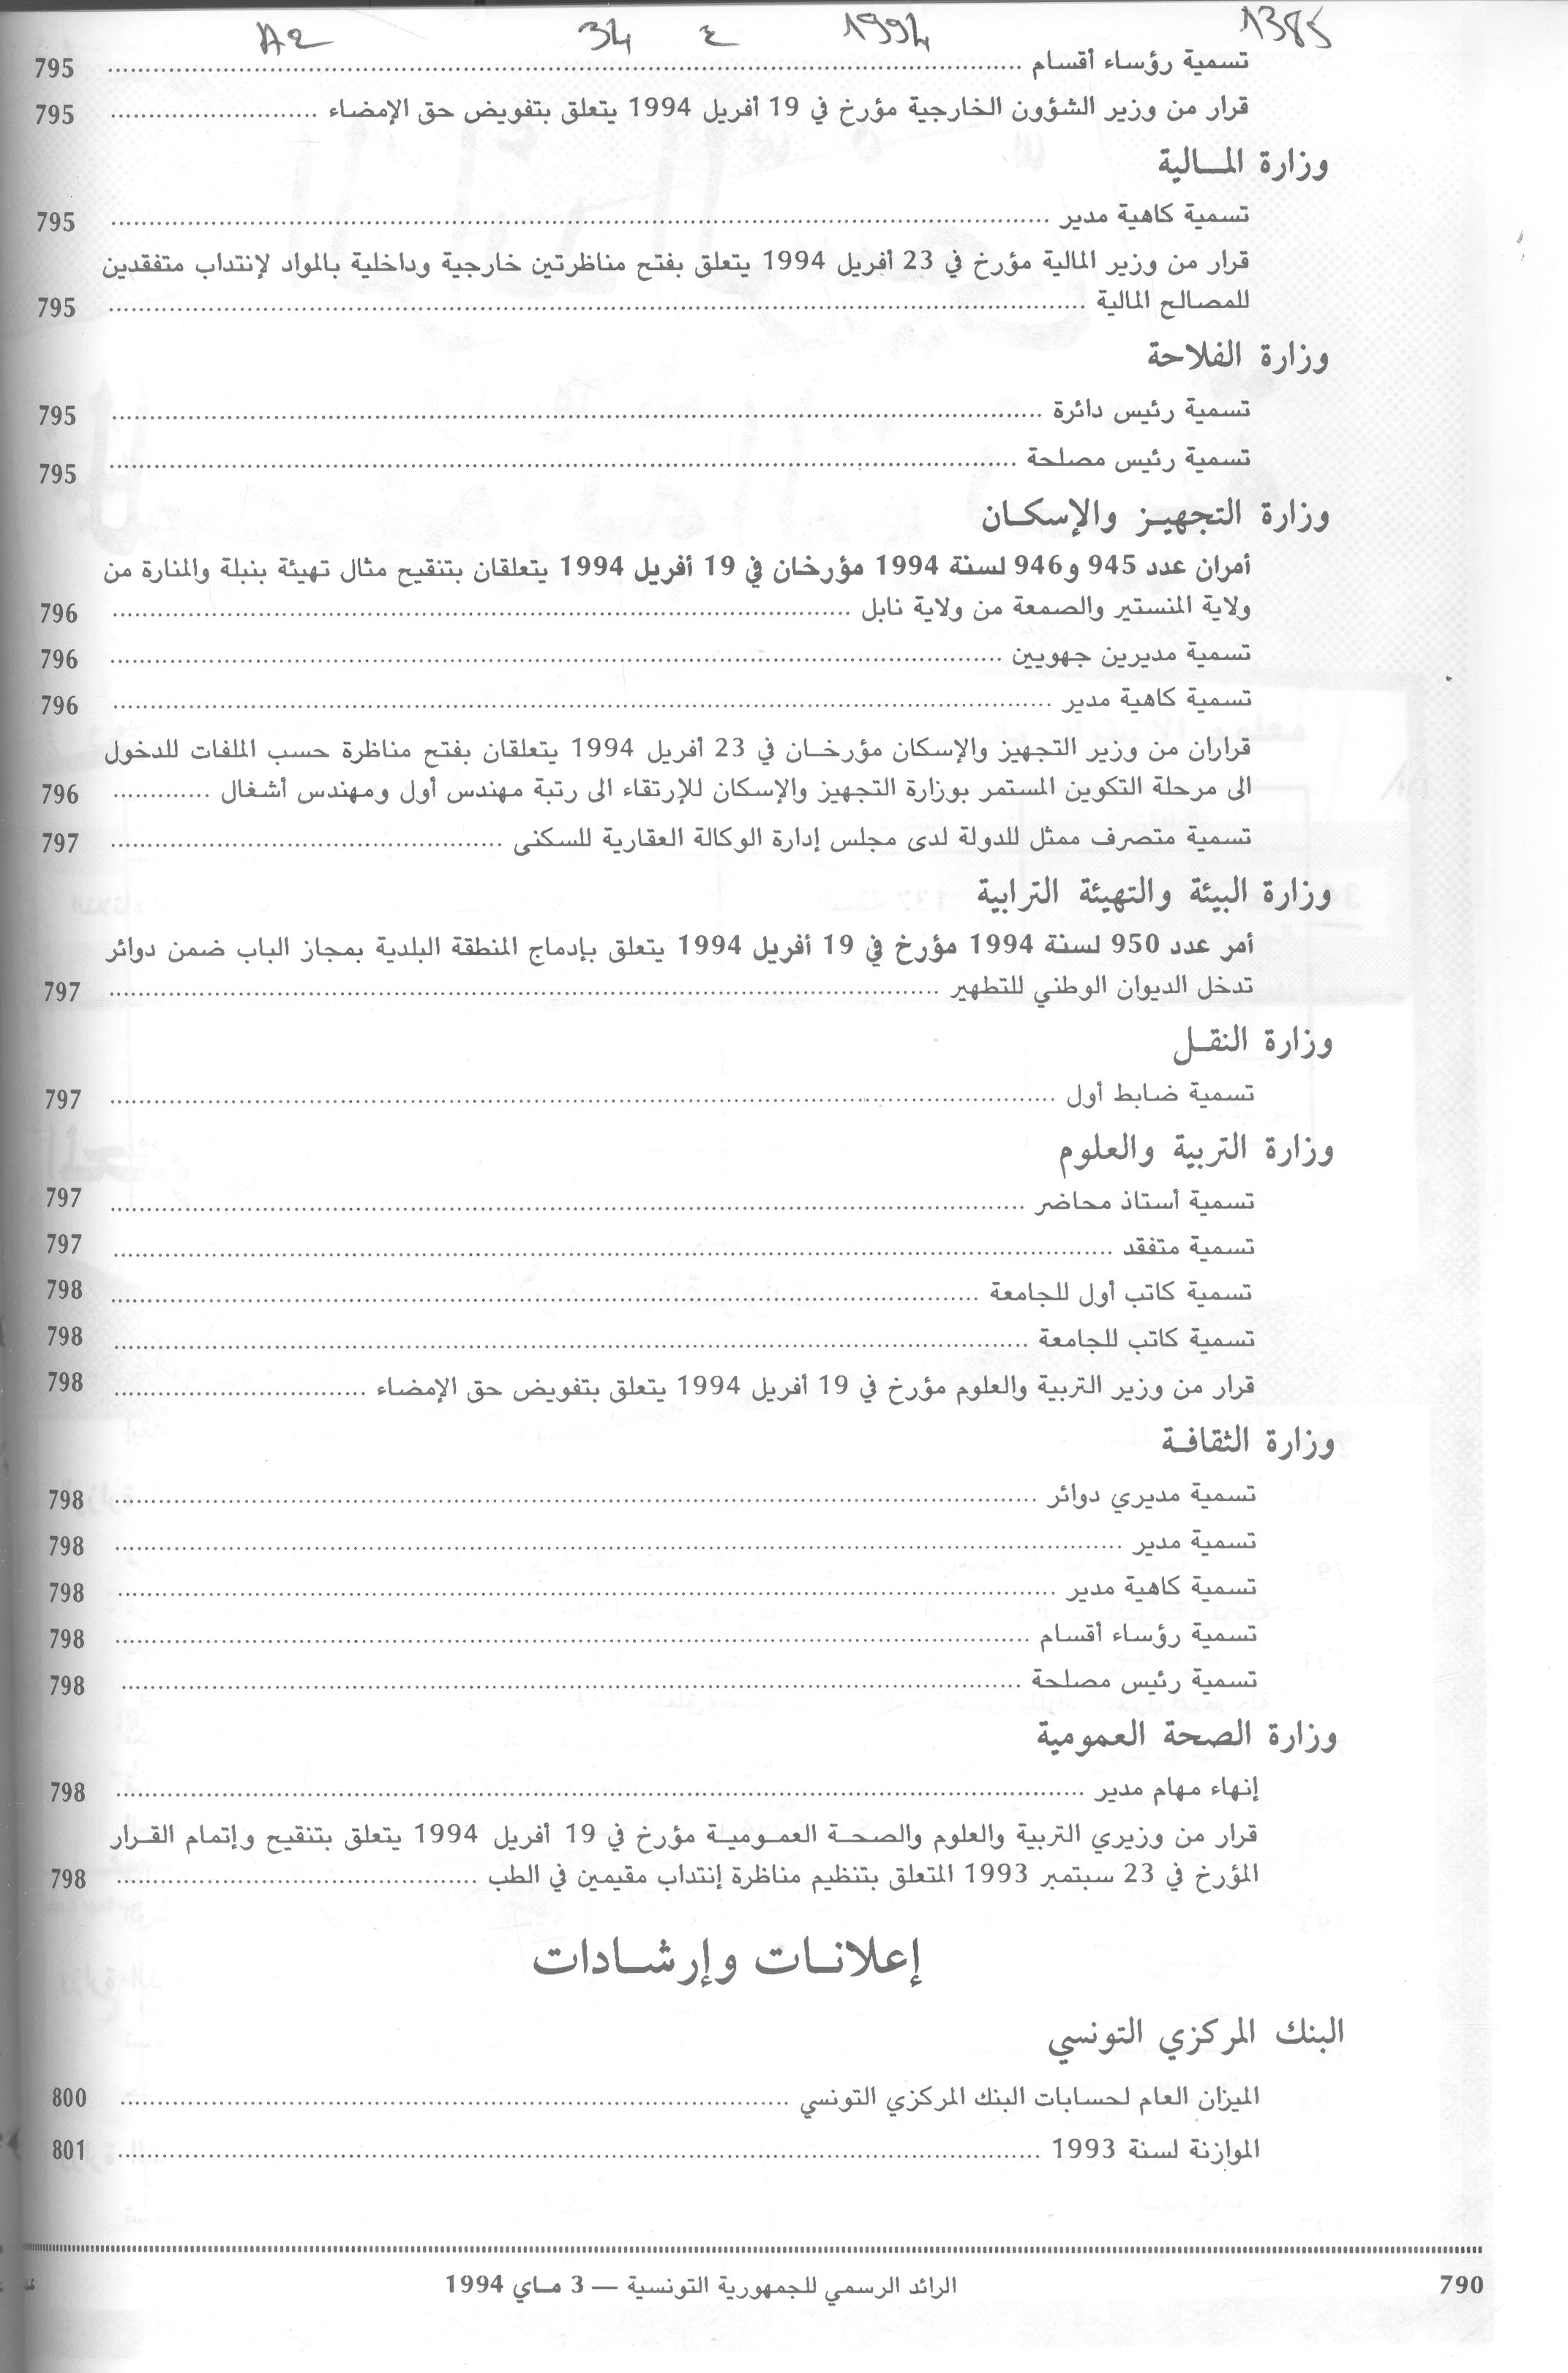 1385 1994 ع 34 A2
تسمية رؤساء أقسام ........ 795
قرار من وزير الشؤون الخارجية مؤرخ في 19 أفريل 1994 يتعلق بتفويض حق الإمضاء ........ 795
وزارة المـالية
تسمية كاهية مدير ........ 795
قرار من وزير المالية مؤرخ في 23 أفريل 1994 يتعلق بفتح مناظرتين خارجية وداخلية بالمواد لإنتداب متفقدين
للمصالح المالية ........ 795
وزارة الفلاحة
تسمية رئيس دائرة ........ 795
تسمية رئيس مصلحة ........ 795
وزارة التجهيـز والإسكـان
أمران عدد 945 و946 لسنة 1994 مؤرخان في 19 أفريل 1994 يتعلقان بتنقيح مثال تهيئة بنبلة والمنارة من
ولاية المنستير والصمعة من ولاية نابل ........ 796
تسمية مديرين جهويين ........ 796
تسمية كاهية مدير ........ 796
قراران من وزير التجهيز والإسكان مؤرخـان في 23 أفريل 1994 يتعلقان بفتح مناظرة حسب الملفات للدخول
الى مرحلة التكوين المستمر بوزارة التجهيز والإسكان للإرتقاء الى رتبة مهندس أول ومهندس أشغال ........ 796
تسمية متصرف ممثل للدولة لدى مجلس إدارة الوكالة العقارية للسكنى ........ 797
وزارة البيئة والتهيئة الترابية
أمر عدد 950 لسنة 1994 مؤرخ في 19 أفريل 1994 يتعلق بإدماج المنطقة البلدية بمجاز الباب ضمن دوائر
تدخل الديوان الوطني للتطهير ........ 797
وزارة النقـل
تسمية ضابط أول ........ 797
وزارة التربية والعلوم
تسمية أستاذ محاضر ........ 797
تسمية متفقد ........ 797
تسمية كاتب أول للجامعة ........ 798
تسمية كاتب للجامعة ........ 798
قرار من وزير التربية والعلوم مؤرخ في 19 أفريل 1994 يتعلق بتفويض حق الإمضاء ........ 798
وزارة الثقافـة
تسمية مديري دوائر ........ 798
تسمية مدير ........ 798
تسمية كاهية مدير ........ 798
تسمية رؤساء أقسام ........ 798
تسمية رئيس مصلحة ........ 798
وزارة الصحة العمومية
إنهاء مهام مدير ........ 798
قرار من وزيري التربية والعلوم والصحـة العمـوميـة مؤرخ في 19 أفريل 1994 يتعلق بتنقيح وإتمام القـرار
المؤرخ في 23 سبتمبر 1993 المتعلق بتنظيم مناظرة إنتداب مقيمين في الطب ........ 798
إعلانـات وإرشـادات
البنك المركزي التونسي
الميزان العام لحسابات البنك المركزي التونسي ........ 800
الموازنة لسنة 1993 ........ 801
790 الرائد الرسمي للجمهورية التونسية — 3 مـاي 1994